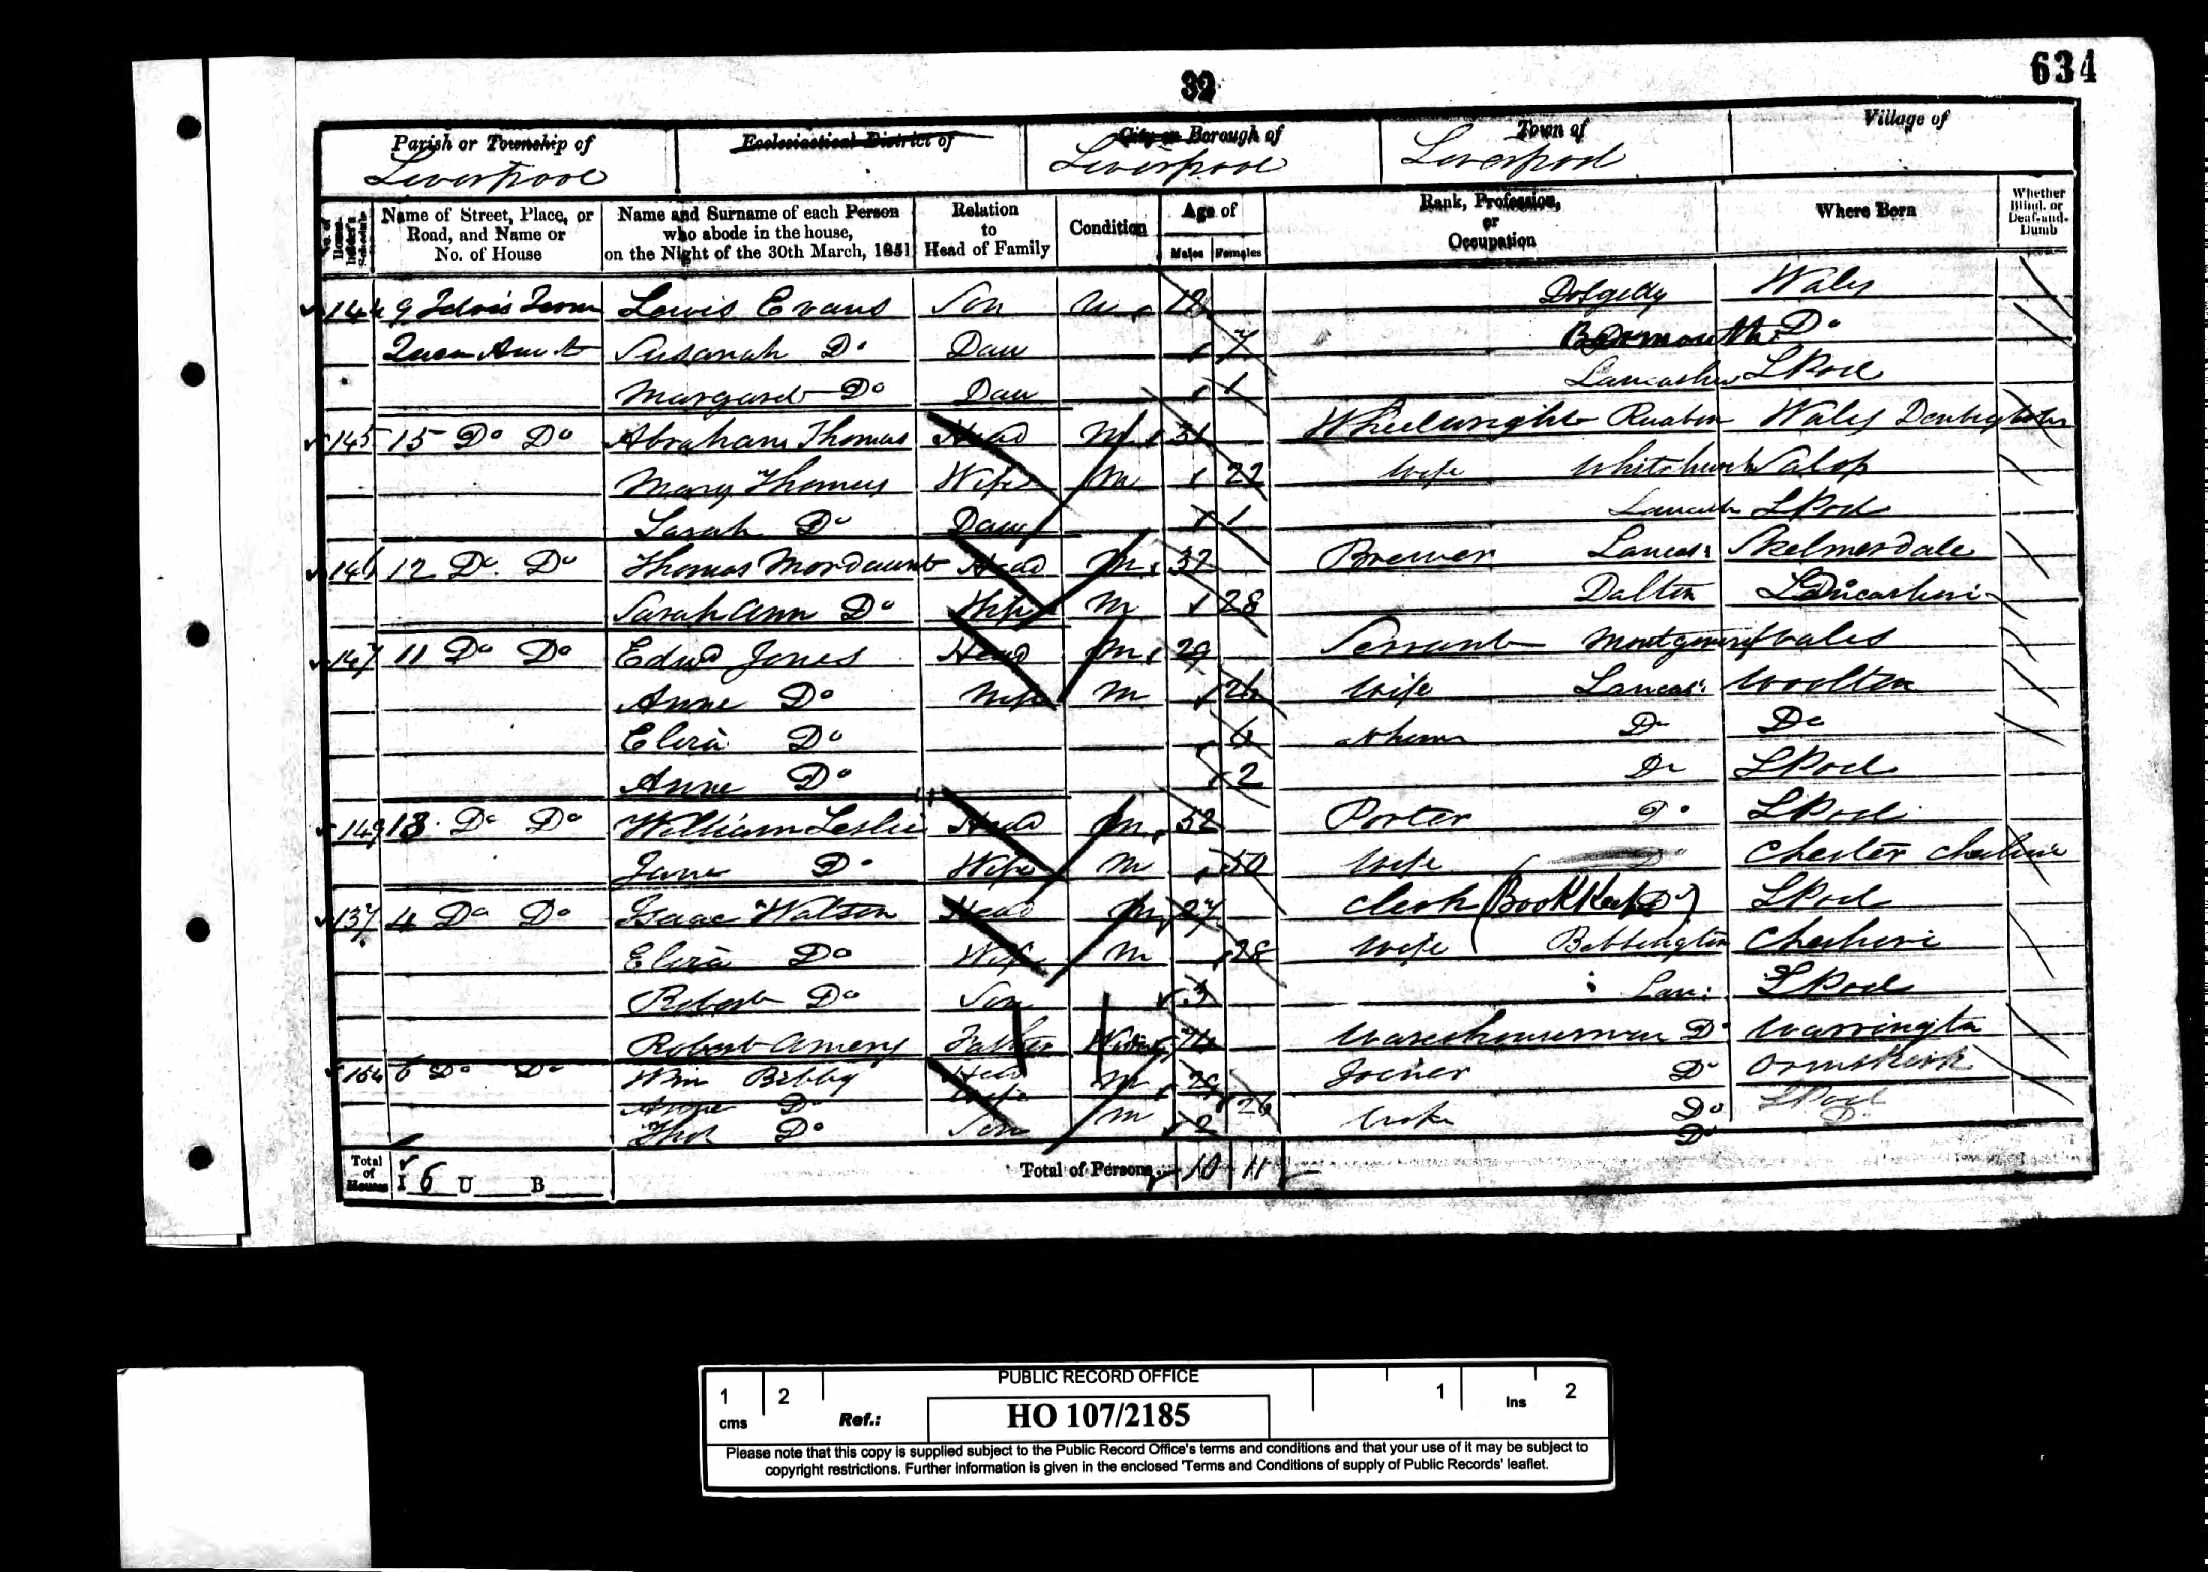 634
32
Parish or Township of
Liverpool
Ecclesiastical District of
City or Borough of
Liverpool
Town of
Liverpool
Village of
Name of Street, Place, or Road, and Name or No. of House
Name and Surname of each Person who abode in the house, on the Night of the 30th March, 1851
Relation to Head of Family
Condition
Age of
Males Females
Rank, Profession, or Occupation
Where Born
Whether Blind, or Deaf-and-Dumb
144 9 Lewis Evans Son 12 Wales
Susanah Do Dau 7 Barmouth Do
Margaret Do Dau 1 Lancashire LPool
145 15 Do Do Abraham Thomas Head M 31 Wheelwright Ruabon Wales
Mary Thomas Wife M 22 Wife Whitchurch Salop
Sarah Do Daur 1 LPool
146 12 Do Do Thomas Mordaunt Head M 37 Brewer Lancas: Skelmersdale
Sarah Ann Do Wife M 28 Dalton Lancashire
147 11 Do Do Edwd Jones Head M 29 Servant Montgomery Wales
Anne Do Wife M 26 Wife Lancas: Woolton
Eliza Do Do Do
Anne Do 2 Do LPool
149 13 Do Do William Leslie Head M 52 Porter Do LPool
Jane Do Wife M 50 Wife Chester Cheshire
137 4 Do Do Isaac Watson Head M 27 Clerk (Book Keeper) LPool
Eliza Do Wife M 28 Wife Bebbington Cheshire
Robert Do Son 3 Lan: LPool
Robert Amery Father Warehouseman Do Warrington
154 6 Do Do Wm Bibby Head M 29 Joiner Do Ormskirk
Anne Do Wife M 26 Do LPool
Thos Do Son 2 Do Do
Total of Houses I 6 U B
Total of Persons 10 11
PUBLIC RECORD OFFICE
1 2 1 2
cms Ref.: HO 107/2185 Ins
Please note that this copy is supplied subject to the Public Record Office's terms and conditions and that your use of it may be subject to
copyright restrictions. Further information is given in the enclosed 'Terms and Conditions of supply of Public Records' leaflet.